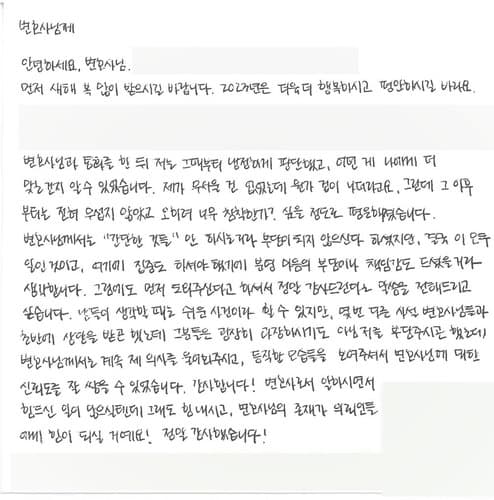 변호사님께
안녕하세요, 변호사님.
먼저 새해 복 많이 받으시길 바랍니다. 2023년은 더욱더 행복하시고 평안하시길 바라요.
변호사님과 통화를 한 뒤 저는 그때부터 냉정하게 판단했고, 어떤 게 나에게 더
맞는건지 알 수 있었습니다. 제가 무서울 건 없었는데 뭔가 겁이 나더라고요, 그런데 그 이후
부터는 전혀 무섭지 않았고 오히려 너무 침착한가? 싶을 정도로 평온해졌습니다.
변호사님께서는 "간단한 것들"만 하시는거라 부담이 되지 않으신다 하셨지만, 결국 이 모두
일인 것이고, 여기에 집중도 하셔야 했기에 분명 마음의 부담이나 책임감도 드셨을거라
생각합니다. 그럼에도 먼저 도와주신다고 하셔서 정말 감사드린다고 말씀을 전해드리고
싶습니다. 남들이 생각할 때는 쉬운 사건이라 할 수 있지만, 몇번 다른 사선 변호사님들과
초반에 상담을 받곤 했는데 그분들은 굉장히 다정하시기도 이상 저를 부담주시곤 했는데
변호사님께서는 계속 제 의사를 물어봐주시고, 듬직한 모습들을 보여주셔서 변호사님에 대한
신뢰도를 잘 쌓을 수 있었습니다. 감사합니다! 변호사로서 일하시면서
힘드신 일이 많으실텐데 그래도 힘내시고, 변호사님의 존재가 의뢰인들
에게 힘이 되실 거예요! 정말 감사했습니다!